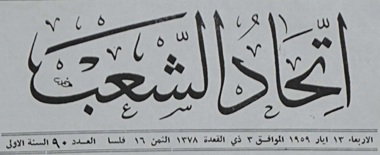 اِتِّحَادُ الشَّعْبِ
الاربعاء ١٣ ايار ١٩٥٩ الموافق ٣ ذي القعدة ١٣٧٨ الثمن ١٦ فلسا العدد ٩٠ السنة الاولى